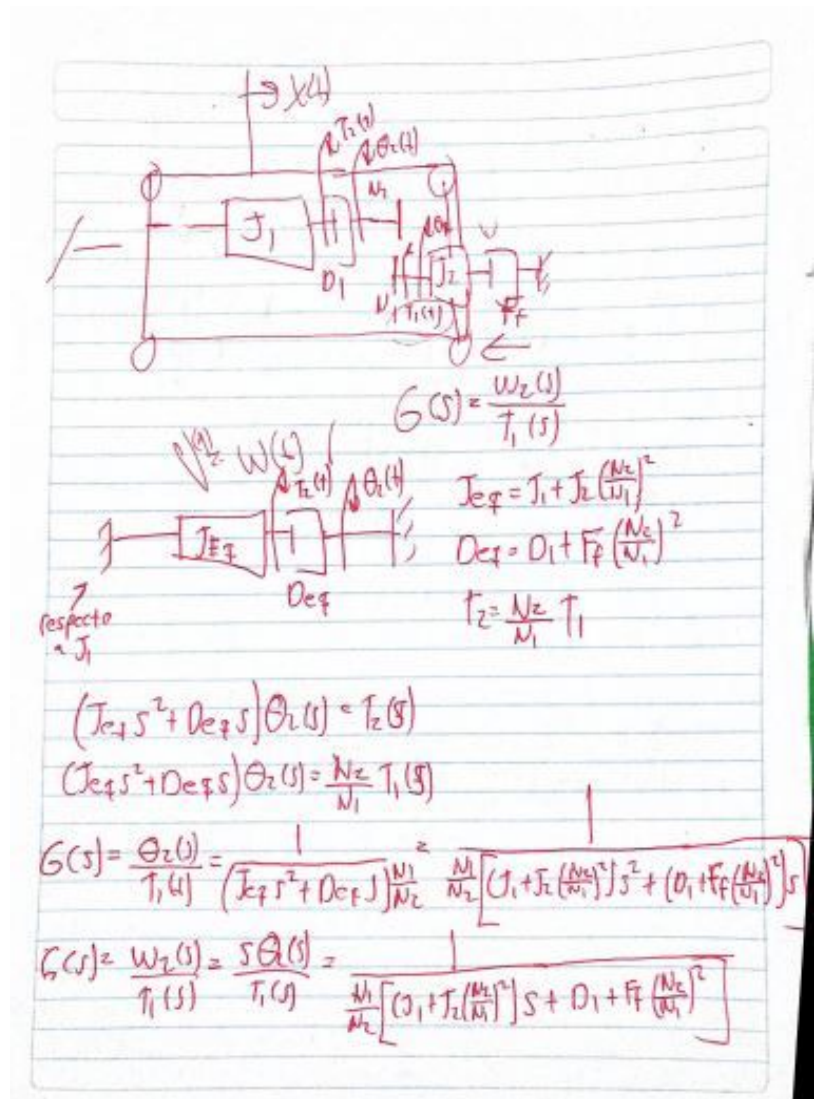 x(t)
T₂(t)
θ₂(t)
N₂
J₁
D₁
J₂
N₁
T₁(t)
Ff
G(s) = W₂(s)/T₁(s)
W(t)
T₂(t) θ₂(t)
Jeq = J₁ + J₂(N₂/N₁)²
JEq
Deq = D₁ + Ff(N₂/N₁)²
Deq
T₂ = N₂/N₁ T₁
respecto
a J₁
(Jeq s² + Deq s)θ₂(s) = T₂(s)
(Jeq s² + Deq s)θ₂(s) = N₂/N₁ T₁(s)
G(s) = θ₂(s)/T₁(s) = 1/((Jeq s² + Deq s)N₁/N₂) = 1/(N₁/N₂[(J₁ + J₂(N₂/N₁)²)s² + (D₁ + Ff(N₂/N₁)²)s])
G(s) = W₂(s)/T₁(s) = sθ₂(s)/T₁(s) = 1/(N₁/N₂[(J₁ + J₂(N₂/N₁)²)s + D₁ + Ff(N₂/N₁)²])